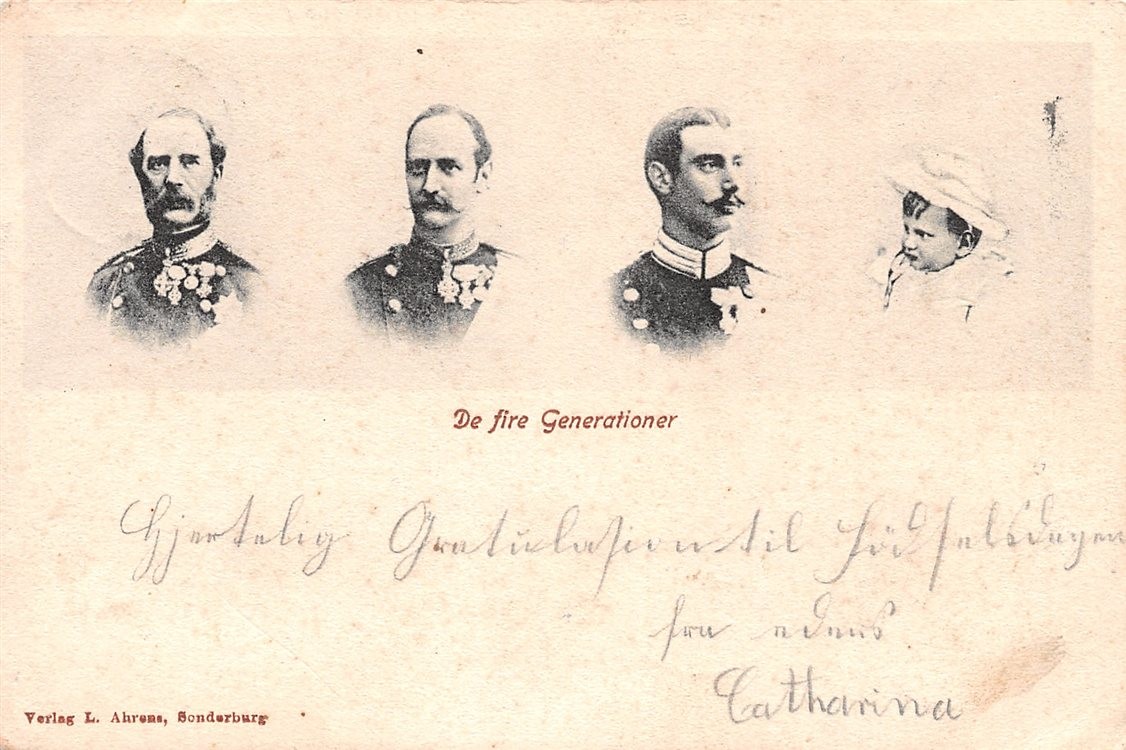 De fire Generationer
Hjertelig Gratulasion til Födselsdagen
fra edens
Catharina
Verlag L. Ahrens, Sonderburg